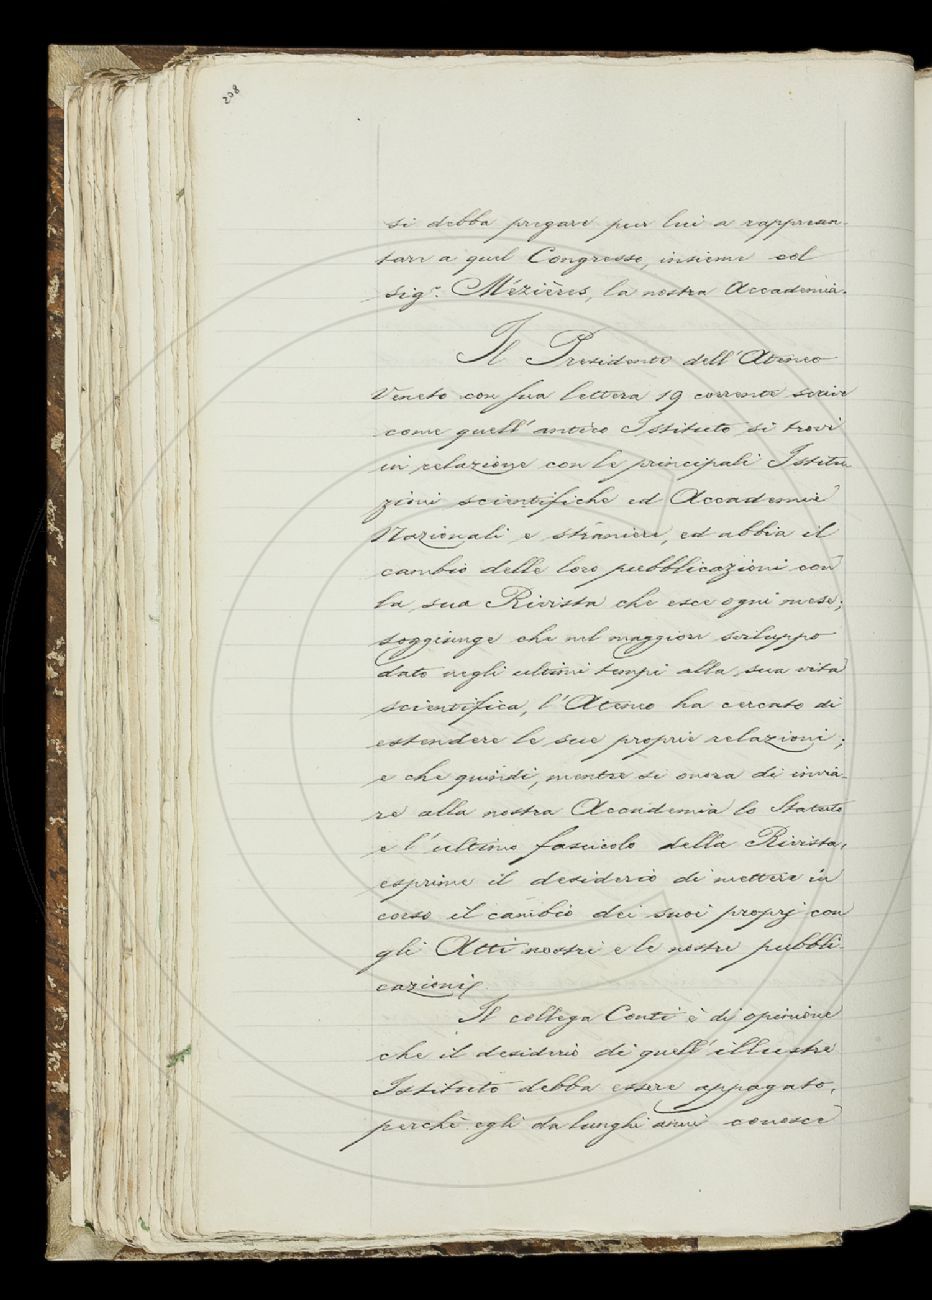 208
si debba pregare pur lui a rappresen-
tare a quel Congresso, insieme col
sig.r Mézières, la nostra Accademia.
Il Presidente dell'Ateneo
Veneto con sua lettera 19 corrente scrive
come quell'antico Istituto si trovi
in relazione con le principali Istitu-
zioni scientifiche ed Accademie
Nazionali e straniere, ed abbia il
cambio delle loro pubblicazioni con
la sua Rivista che esce ogni mese;
soggiunge che nel maggiore sviluppo
dato negli ultimi tempi alla sua vita
scientifica, l'Ateneo ha cercato di
estendere le sue proprie relazioni;
e che quindi, mentre si onora di invia-
re alla nostra Accademia lo Statuto
e l'ultimo fascicolo della Rivista,
esprime il desiderio di mettere in
corso il cambio dei suoi proprj con
gli Atti nostri e le nostre pubbli-
cazioni.
Il collega Conti è di opinione
che il desiderio di quell'illustre
Istituto debba essere appagato,
perchè egli da lunghi anni conosce